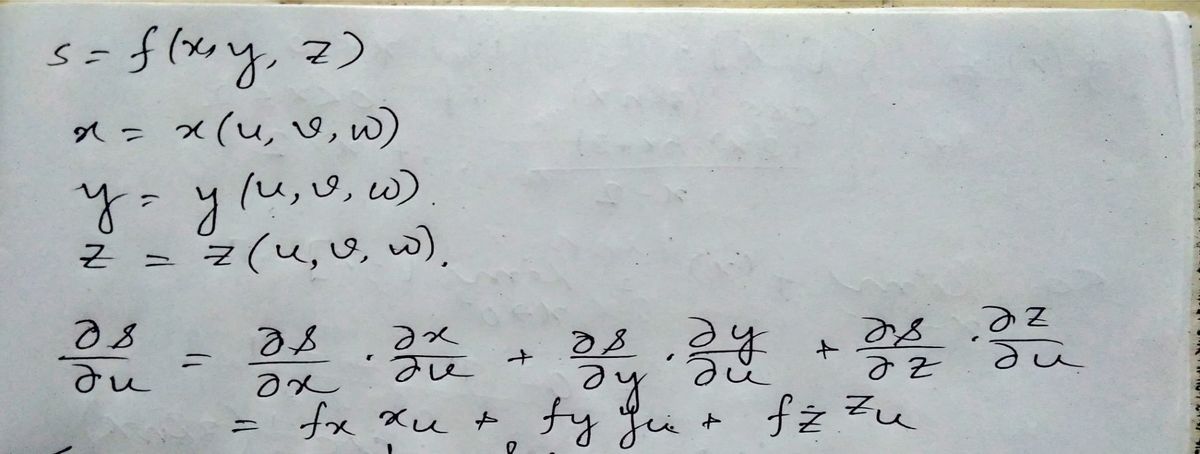 s = f(x, y, z)
x = x(u, v, w)
y = y(u, v, w).
z = z(u, v, w).
∂s/∂u = ∂s/∂x · ∂x/∂u + ∂s/∂y · ∂y/∂u + ∂s/∂z · ∂z/∂u
= fx xu + fy yu + fz zu